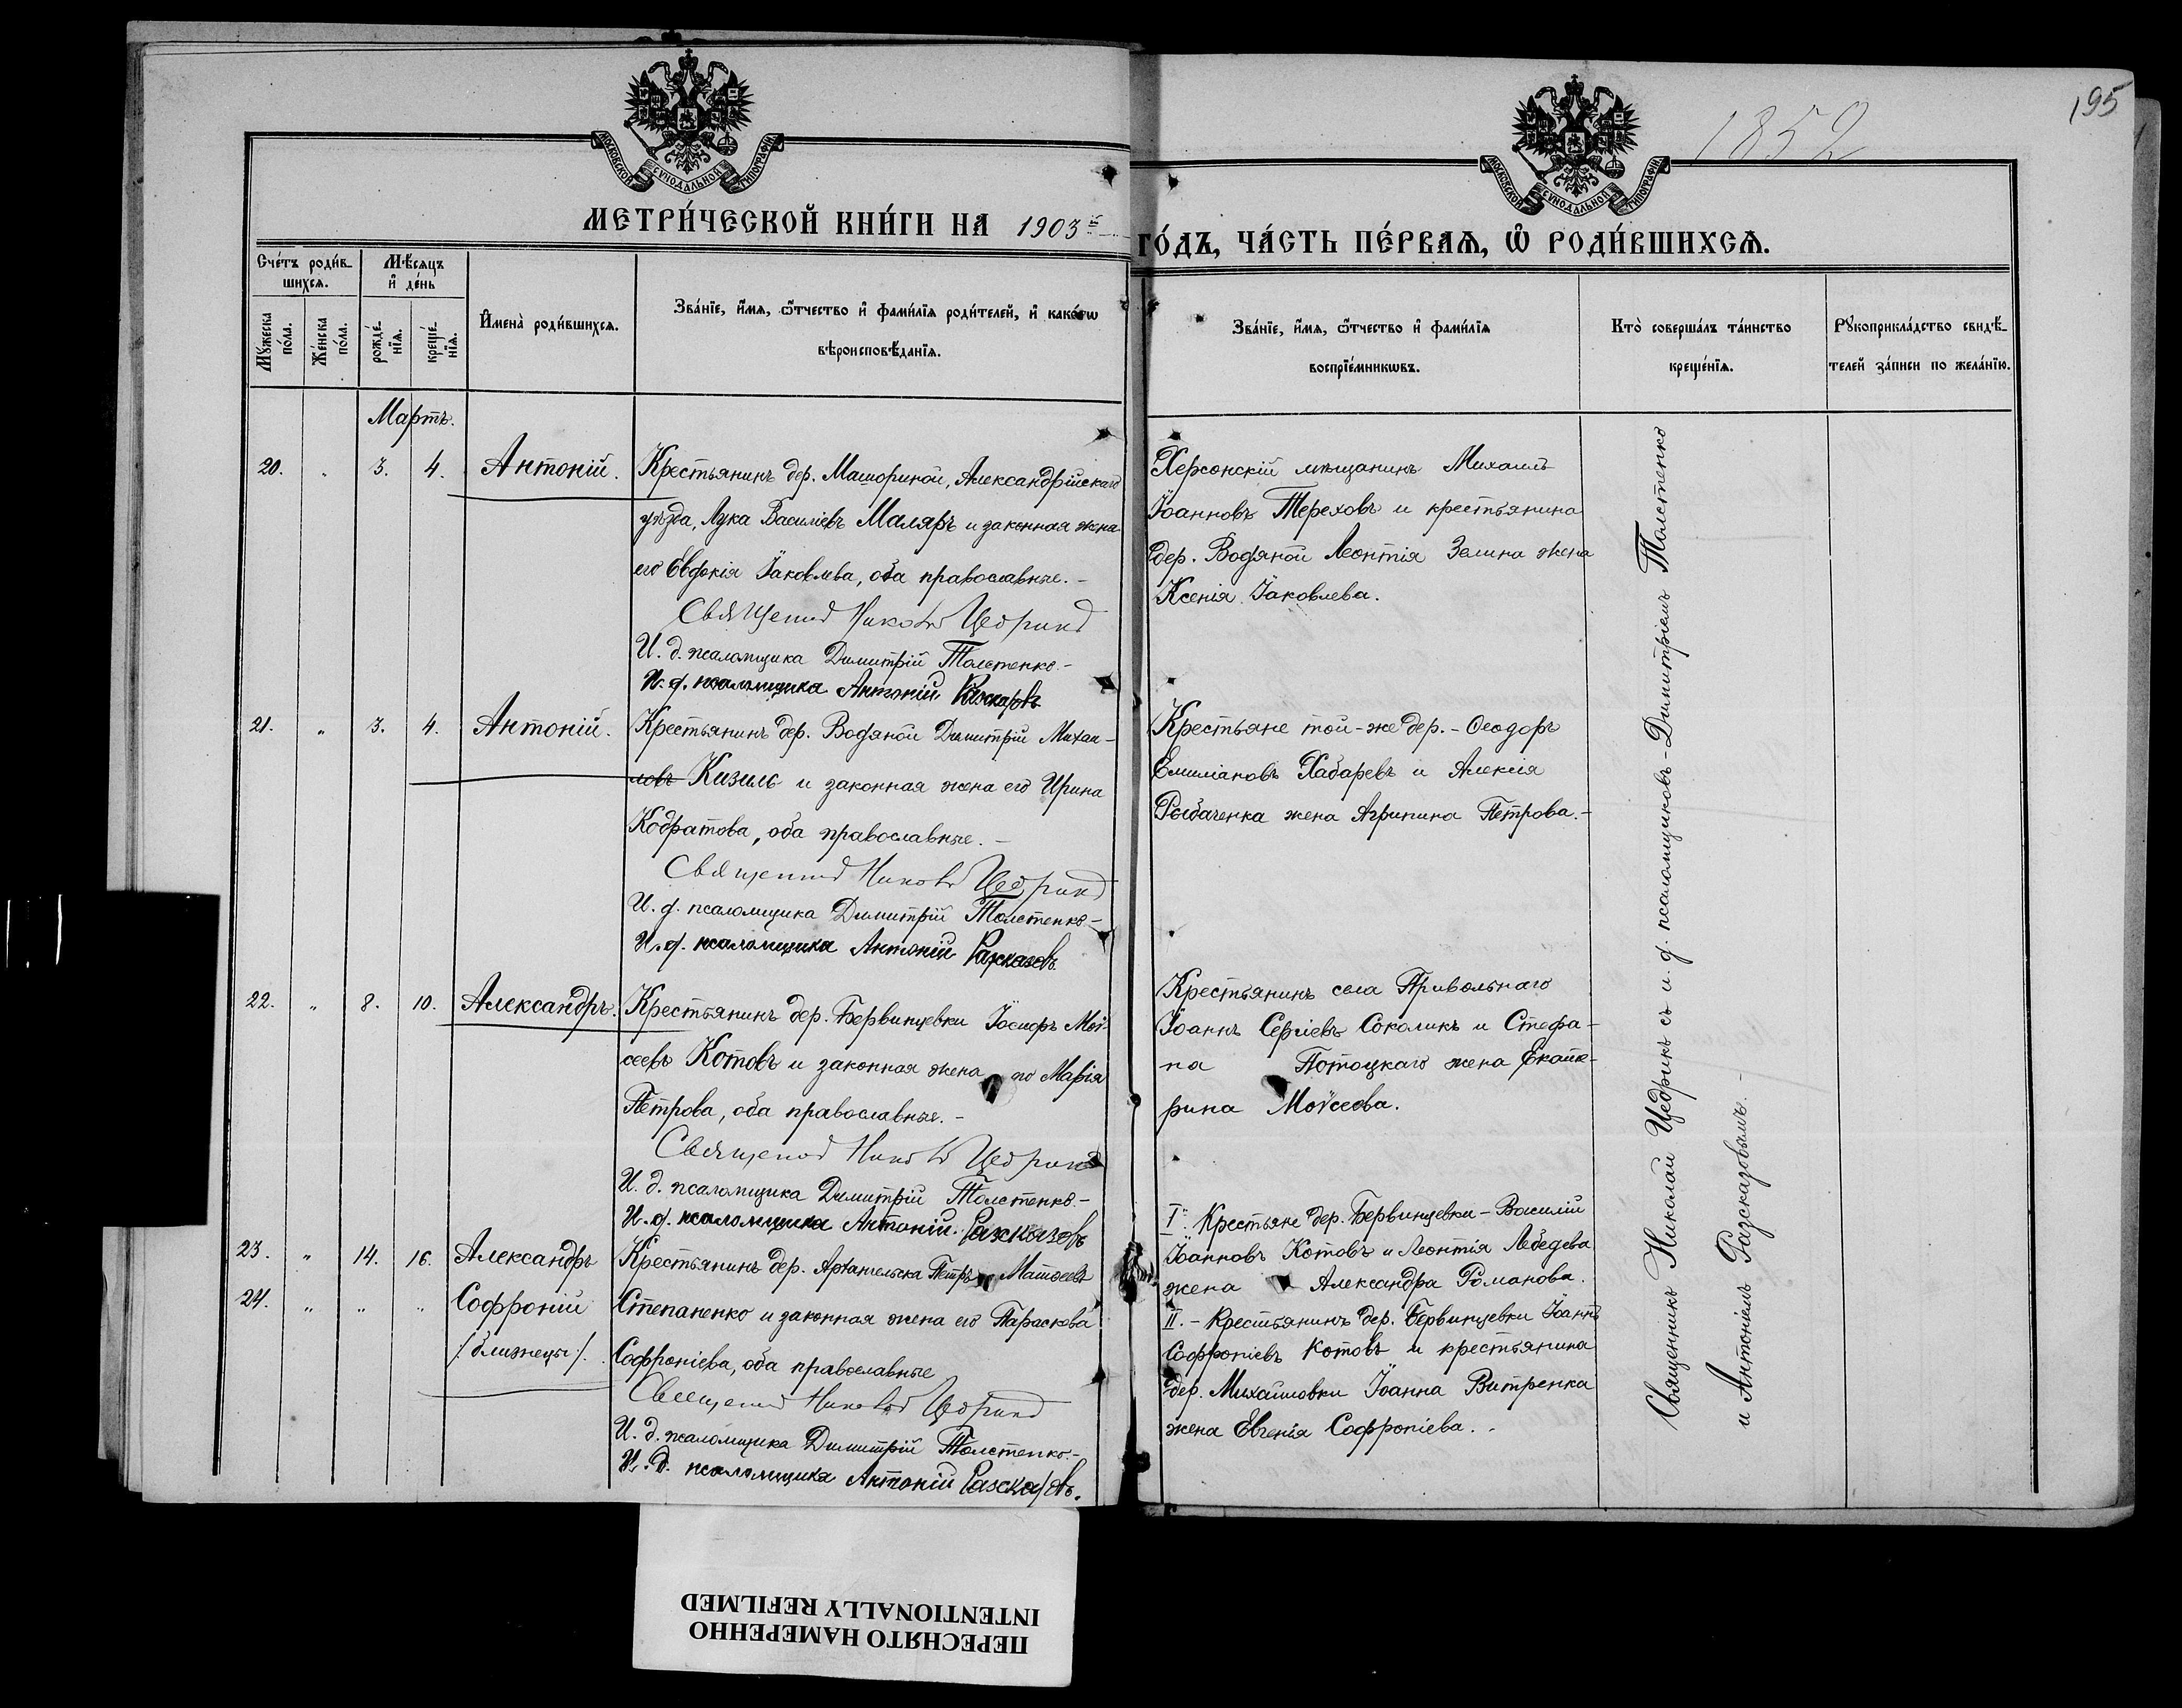 195
1852
МОСКОВСКОЙ СѴНОДАЛЬНОЙ ТИПОГРАФІИ
МОСКОВСКОЙ СѴНОДАЛЬНОЙ ТИПОГРАФІИ
МЕТРИ́ЧЕСКОЙ КНИ́ГИ НА 1903 й
ГО́ДЪ, ЧА́СТЬ ПЕ́РВАѦ, Ѿ РОДИ́ВШИХСѦ.
Сче́тъ роди́в-
шихсѧ.
Мѣ́сѧцъ
и҆ де́нь
Мꙋ́жеска по́ла.
Же́нска по́ла.
рожде́-
нїѧ.
креще́-
нїѧ.
И҆мена̀ роди́вшихсѧ.
Зва́нїе, и҆́мѧ, ѻ҆́тчество и҆ фами́лїѧ роди́телей, и҆ како́гѡ
вѣроисповѣ́данїѧ.
Зва́нїе, и҆́мѧ, ѻ҆́тчество и҆ фами́лїѧ
воспрїе́мникѡвъ.
Кто̀ соверша́лъ та́инство
креще́нїѧ.
Рꙋкоприкла́дство свидѣ́-
телей за́писи по жела́нїю.
Мартъ.
20. " 3. 4. Антоній.
Крестьянинъ дер. Машориной, Александрійскаго
уѣзда, Лука Василіевъ Маляръ и законная жена
его Евдокія Іаковлева, оба православные. -
Священник Николай Цедрикъ
И. д. псаломщика Димитрій Толстенко. -
И. д. псаломщика Антоній Разсказовъ
Херсонскій мѣщанинъ Михаилъ
Іоанновъ Тереховъ и крестьянина
дер. Водяной Леонтія Зелина жена
Ксенія Іаковлева.
21. " 3. 4. Антоній.
Крестьянинъ дер. Водяной Димитрій Михаи-
ловъ Кизиль и законная жена его Ирина
Кодратова, оба православные. -
Священник Николай Цедрикъ
И. д. псаломщика Димитрій Толстенко -
И. д. псаломщика Антоній Разсказовъ
Крестьяне той-же дер. - Ѳеодоръ
Емиліановъ Хабаревъ и Алексія
Рыбаченка жена Агрипина Петрова. -
22. " 8. 10. Александръ.
Крестьянинъ дер. Бервинцевки Іосифъ Мои-
сеевъ Котовъ и законная жена его Марія
Петрова, оба православные. -
Священник Николай Цедрикъ
И. д. псаломщика Димитрій Толстенко -
И. д. псаломщика Антоній Разсказовъ
Крестьянинъ села Привольнаго
Іоаннъ Сергіевъ Соколикъ и Стефа-
на Потоцкаго жена Екате-
рина Моѵсеова.
23. " 14. 16. Александръ
24. " " " Софроній
/: близнецы :/.
Крестьянинъ дер. Архангельска Петръ Матѳеевъ
Степаненко и законная жена его Параскева
Софроніева, оба православные
Священник Николай Цедрикъ
И. д. псаломщика Димитрій Толстенко. -
И. д. псаломщика Антоній Разсказовъ.
I. Крестьяне дер. Бервинцевки - Василій
Іоанновъ Котовъ и Леонтія Лебедева
жена Александра Романова.
II. - Крестьянинъ дер. Бервинцевки Іоаннъ
Софроніевъ Котовъ и крестьянина
дер. Михайловки Іоанна Витренка
жена Евгенія Софроніева. -
Священникъ Николай Цедрикъ съ и. д. псаломщиковъ - Димитріемъ Толстенко
и Антоніемъ Разсказовымъ. -
ПЕРЕСНЯТО НАМЕРЕННО
INTENTIONALLY REFILMED